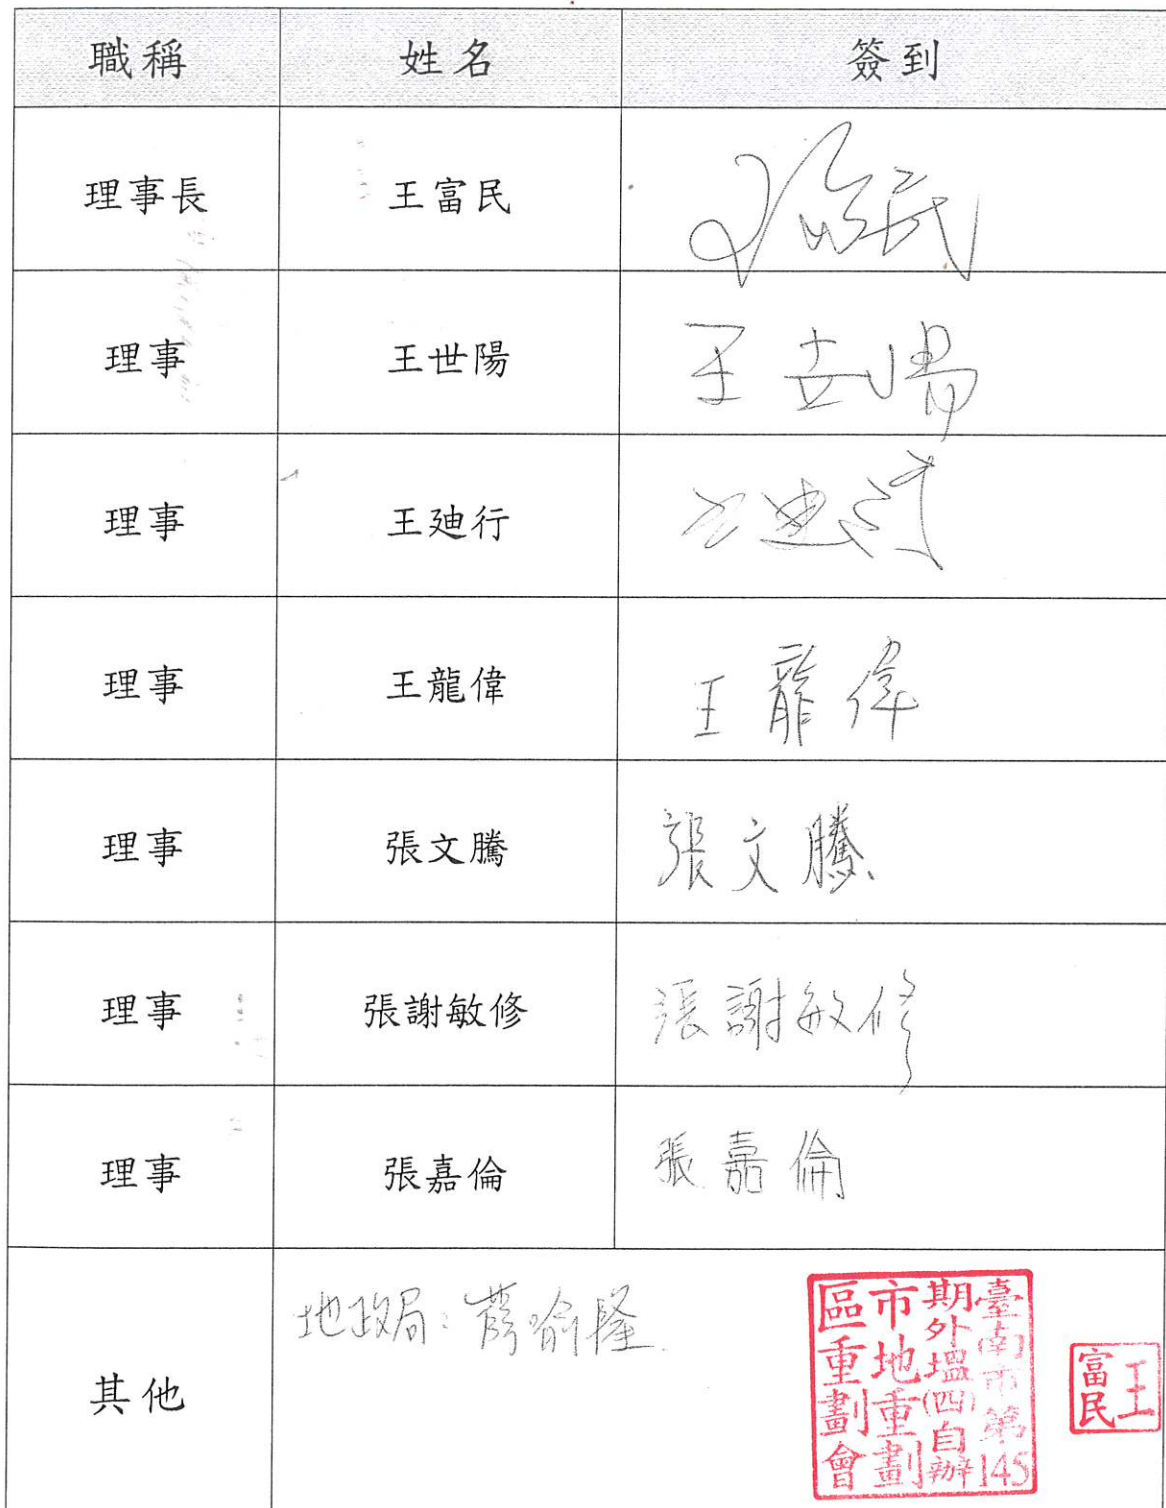 職稱 姓名 簽到
理事長 王富民 王富民
理事 王世陽 王世陽
理事 王廸行 王廸行
理事 王龍偉 王龍偉
理事 張文騰 張文騰
理事 張謝敏修 張謝敏修
理事 張嘉倫 張嘉倫
其他 地政局：薛喻隆
臺南市第145
期外塭(四)自辦
市地重劃
區重劃會
王富民